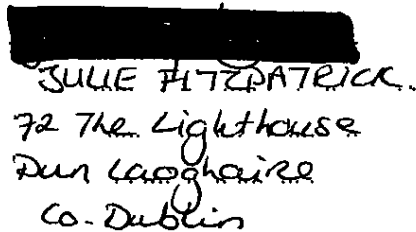 JULIE FITZPATRICK.
72 The Lighthouse
Dun Laoghaire
Co. Dublin